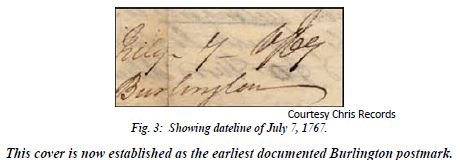 7
Burlington
Courtesy Chris Records
Fig. 3: Showing dateline of July 7, 1767.
This cover is now established as the earliest documented Burlington postmark.